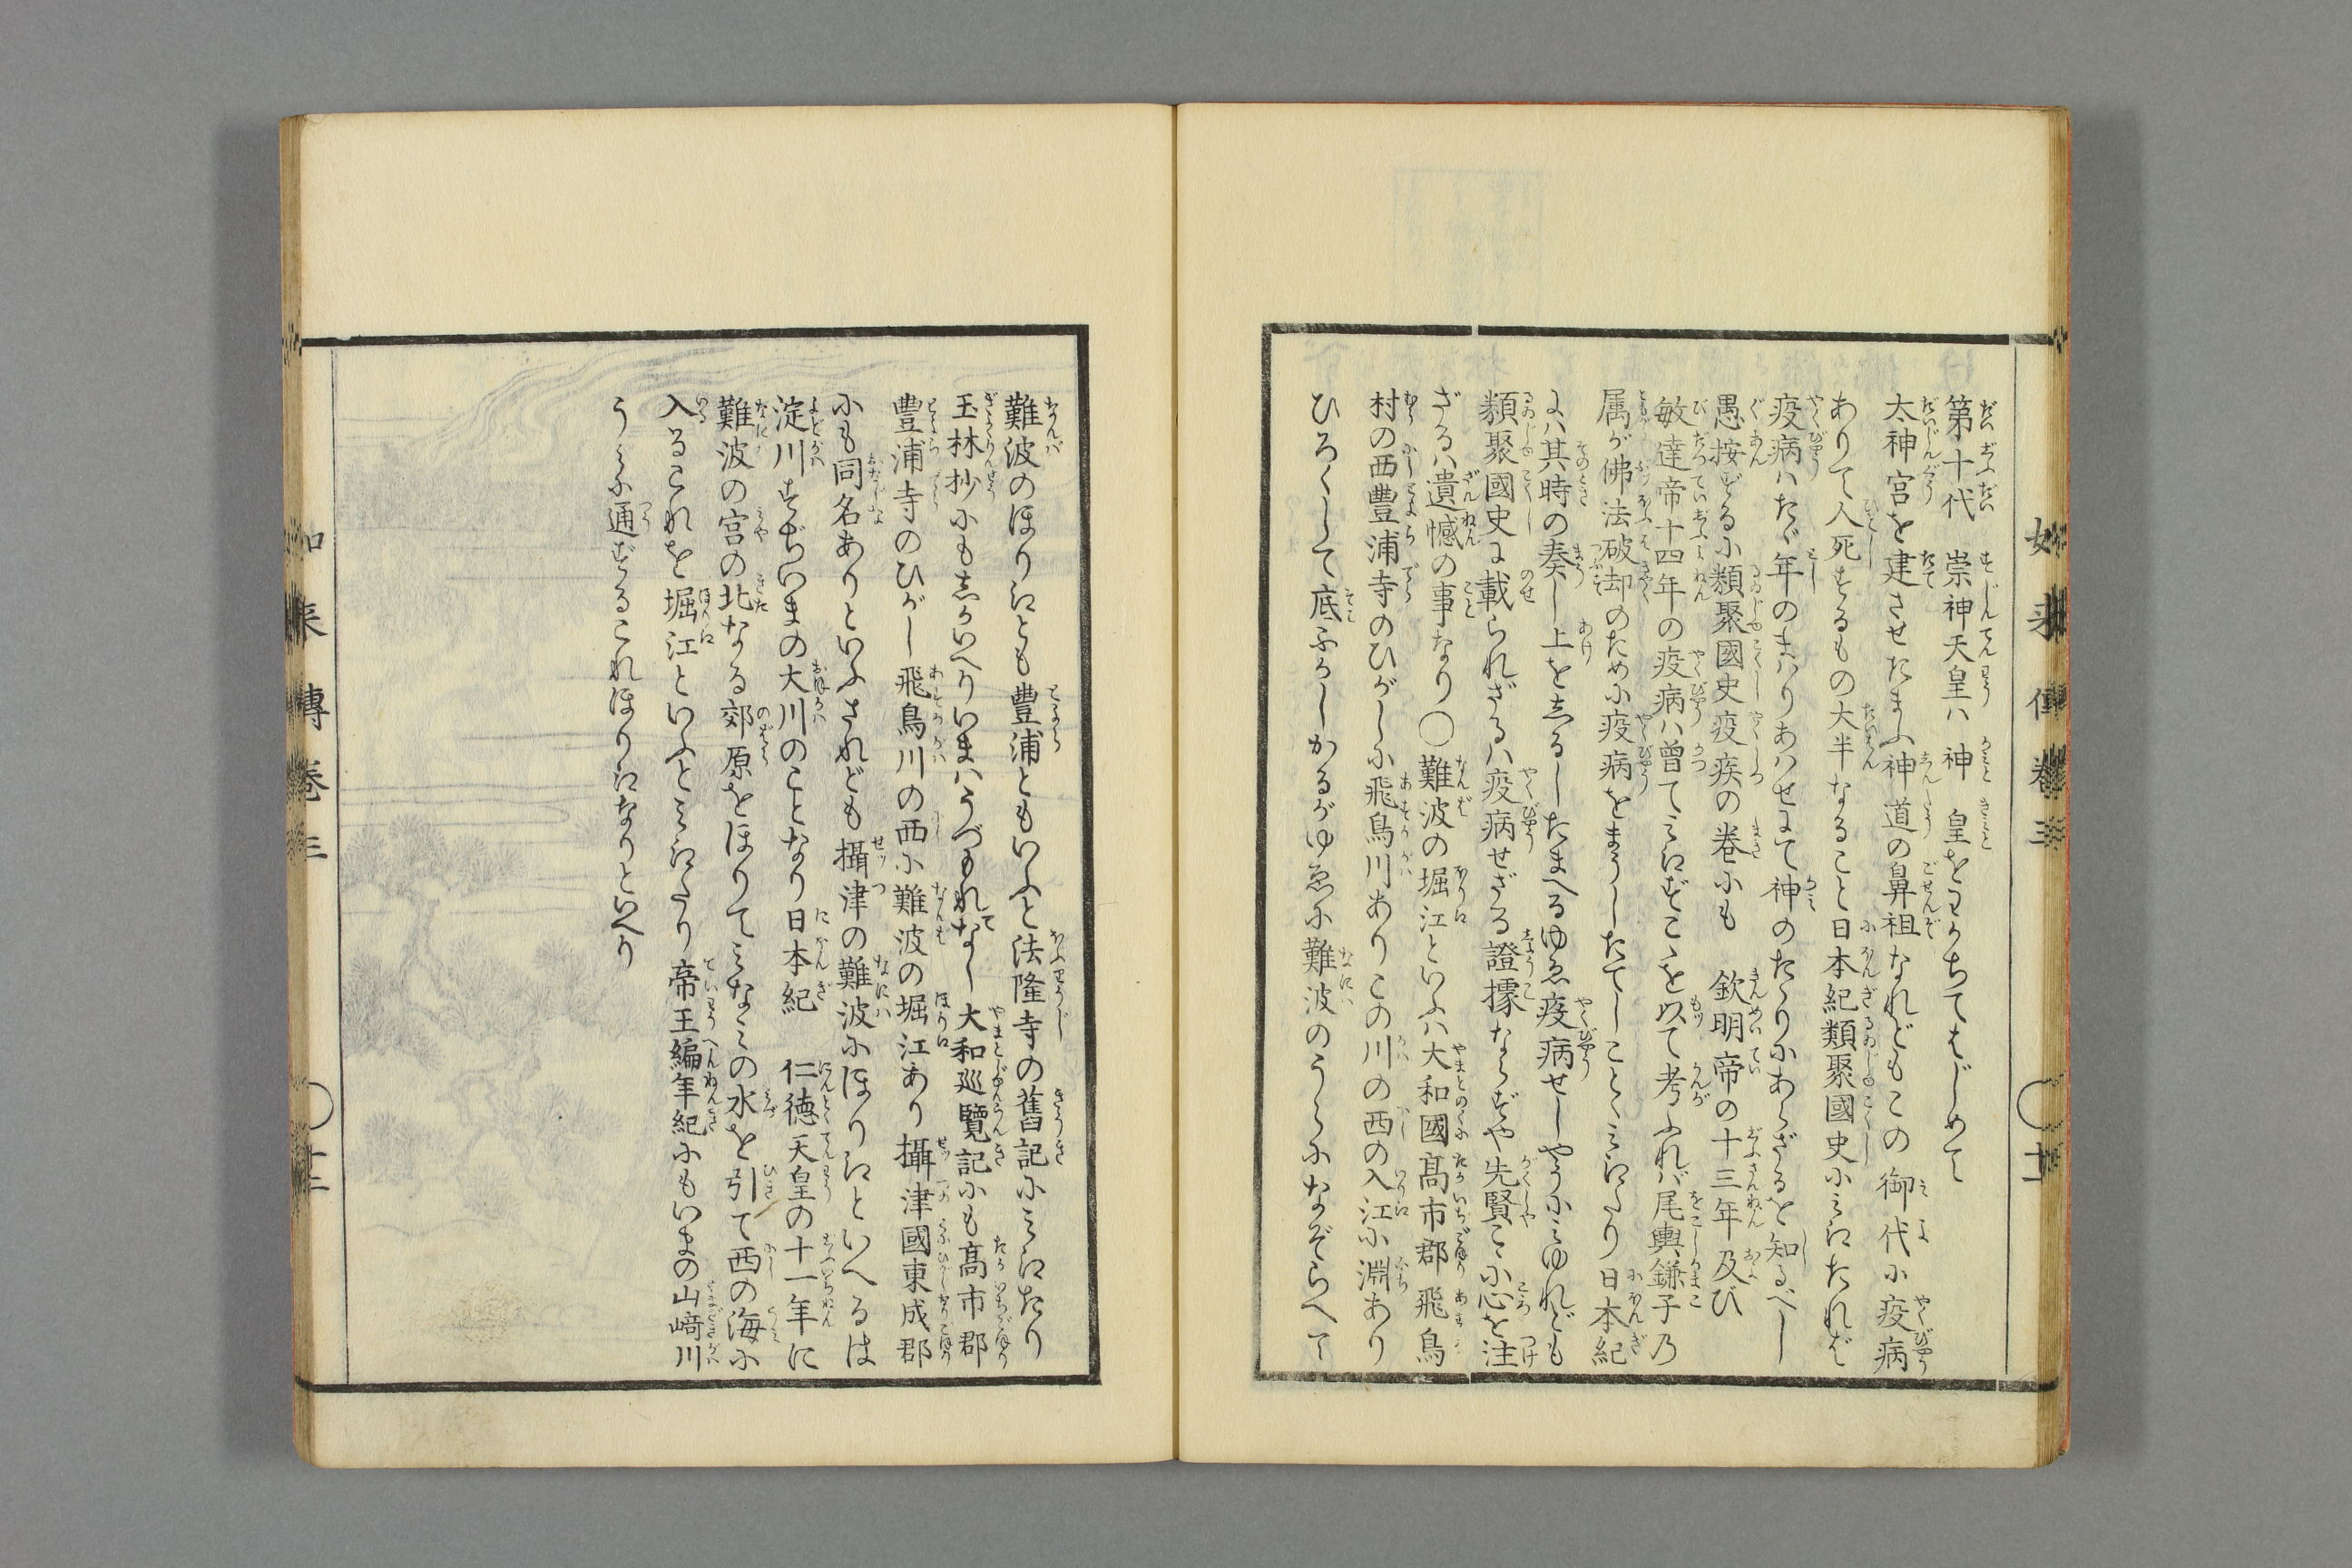 第十代　崇神天皇ハ　神　皇をわかちてはじめて
太神宮を建させたまふ神道の鼻祖なれどもこの　御代に疫病
ありて人死するもの大半なること日本紀類聚國史にみえたれば
疫病ハたゞ年のまハりあハせにて神のたゝりにあらざると知るべし
愚按ずるに類聚國史疫疾の巻にも　欽明帝の十三年及び
敏達帝十四年の疫病ハ曽てみえずこゝを以て考ふれバ尾輿鎌子乃
属が佛法破却のために疫病をまうしたてしことゝみえたり日本紀
にハ其時の奏し上をしるしたまへるゆゑ疫病せしやうにみゆれども
類聚國史に載られざるハ疫病せざる證據ならずや先賢こゝに心を注
ざるハ遺憾の事なり〇難波の堀江といふハ大和國髙市郡飛鳥
村の西豊浦寺のひがしに飛鳥川ありこの川の西の入江に淵あり
ひろくして底ふかしかるがゆゑに難波のうらになぞらへて
如来傳巻三
難波のほり江とも豊浦ともいふと法隆寺の舊記にみえたり
玉林抄にもしかいへりいまハうづもれてなし大和廵覽記にも髙市郡
豊浦寺のひがし飛鳥川の西に難波の堀江あり攝津國東成郡
にも同名ありといふされども攝津の難波にほり江といへるは
淀川すぢいまの大川のことなり日本紀　仁徳天皇の十一年に
難波の宮の北なる郊原をほりてみなミの水を引て西の海に
入るこれを堀江といふとみえたり帝王編年紀にもいまの山﨑川
うみに通ずるこれほり江なりといへり
如来傳巻三